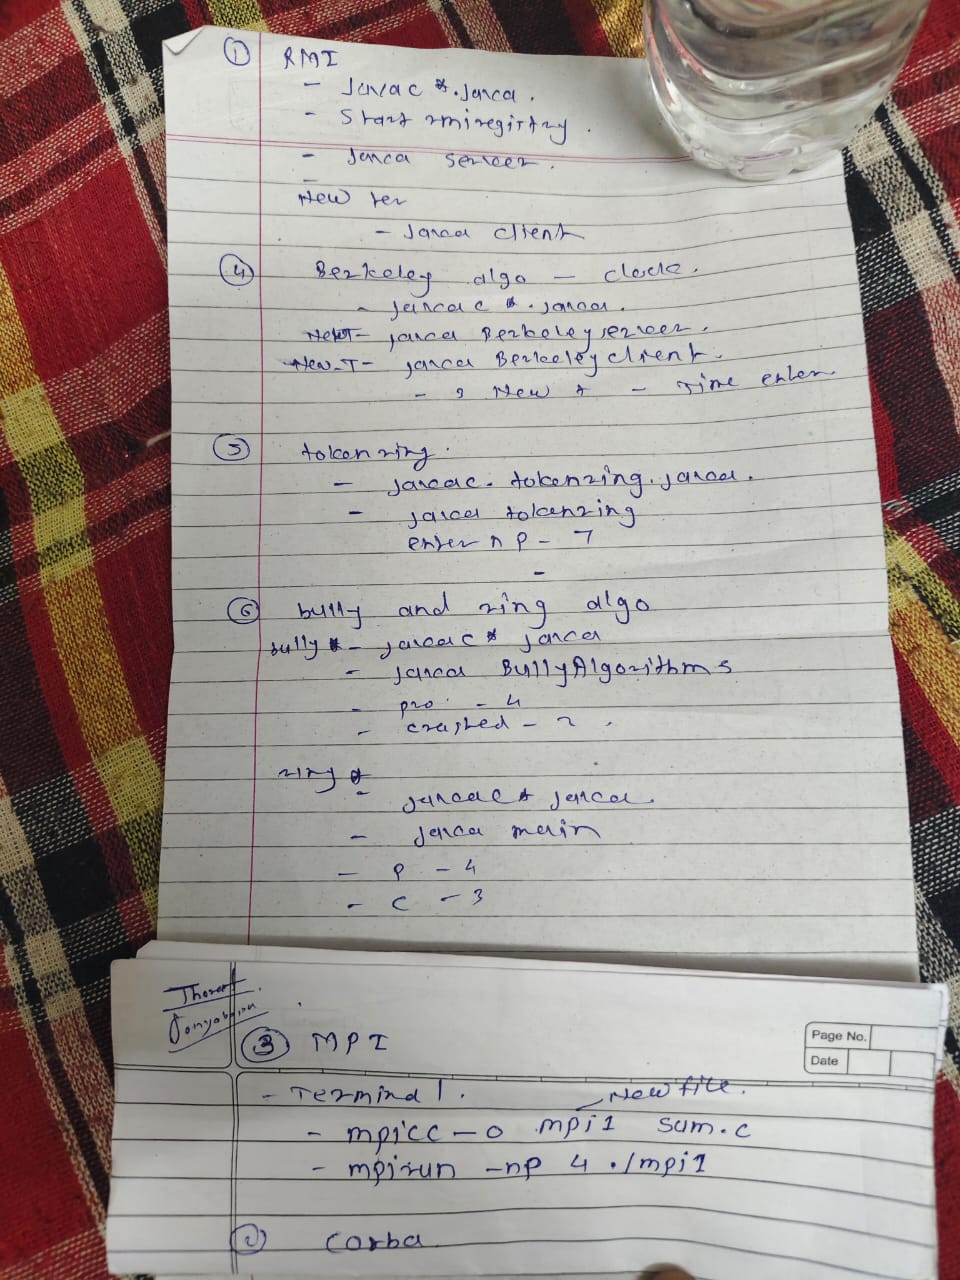 ① RMI
- Javac *.java.
- Start rmiregistry.
- Java server.
-
New ter
- Java client
④ Berkeley algo - clock.
- javac *.java.
New T - java Berkeley server.
New-T - java Berkeley client.
- 2 New t - Time enter
⑤ token ring.
- javac. tokenring.java.
- java tokenring
enter n p - 7
-
⑥ bully and ring algo
bully * - javac * java
- java BullyAlgorithms
- pro. - 4
- crashed - 2.
ring *
- javac * java.
- java main
- P - 4
- C - 3
Page No.
Date
③ MPI
- Terminal 1.
New file.
- mpicc -o mpi1 sum.c
- mpirun -np 4 ./mpi1
② Corba